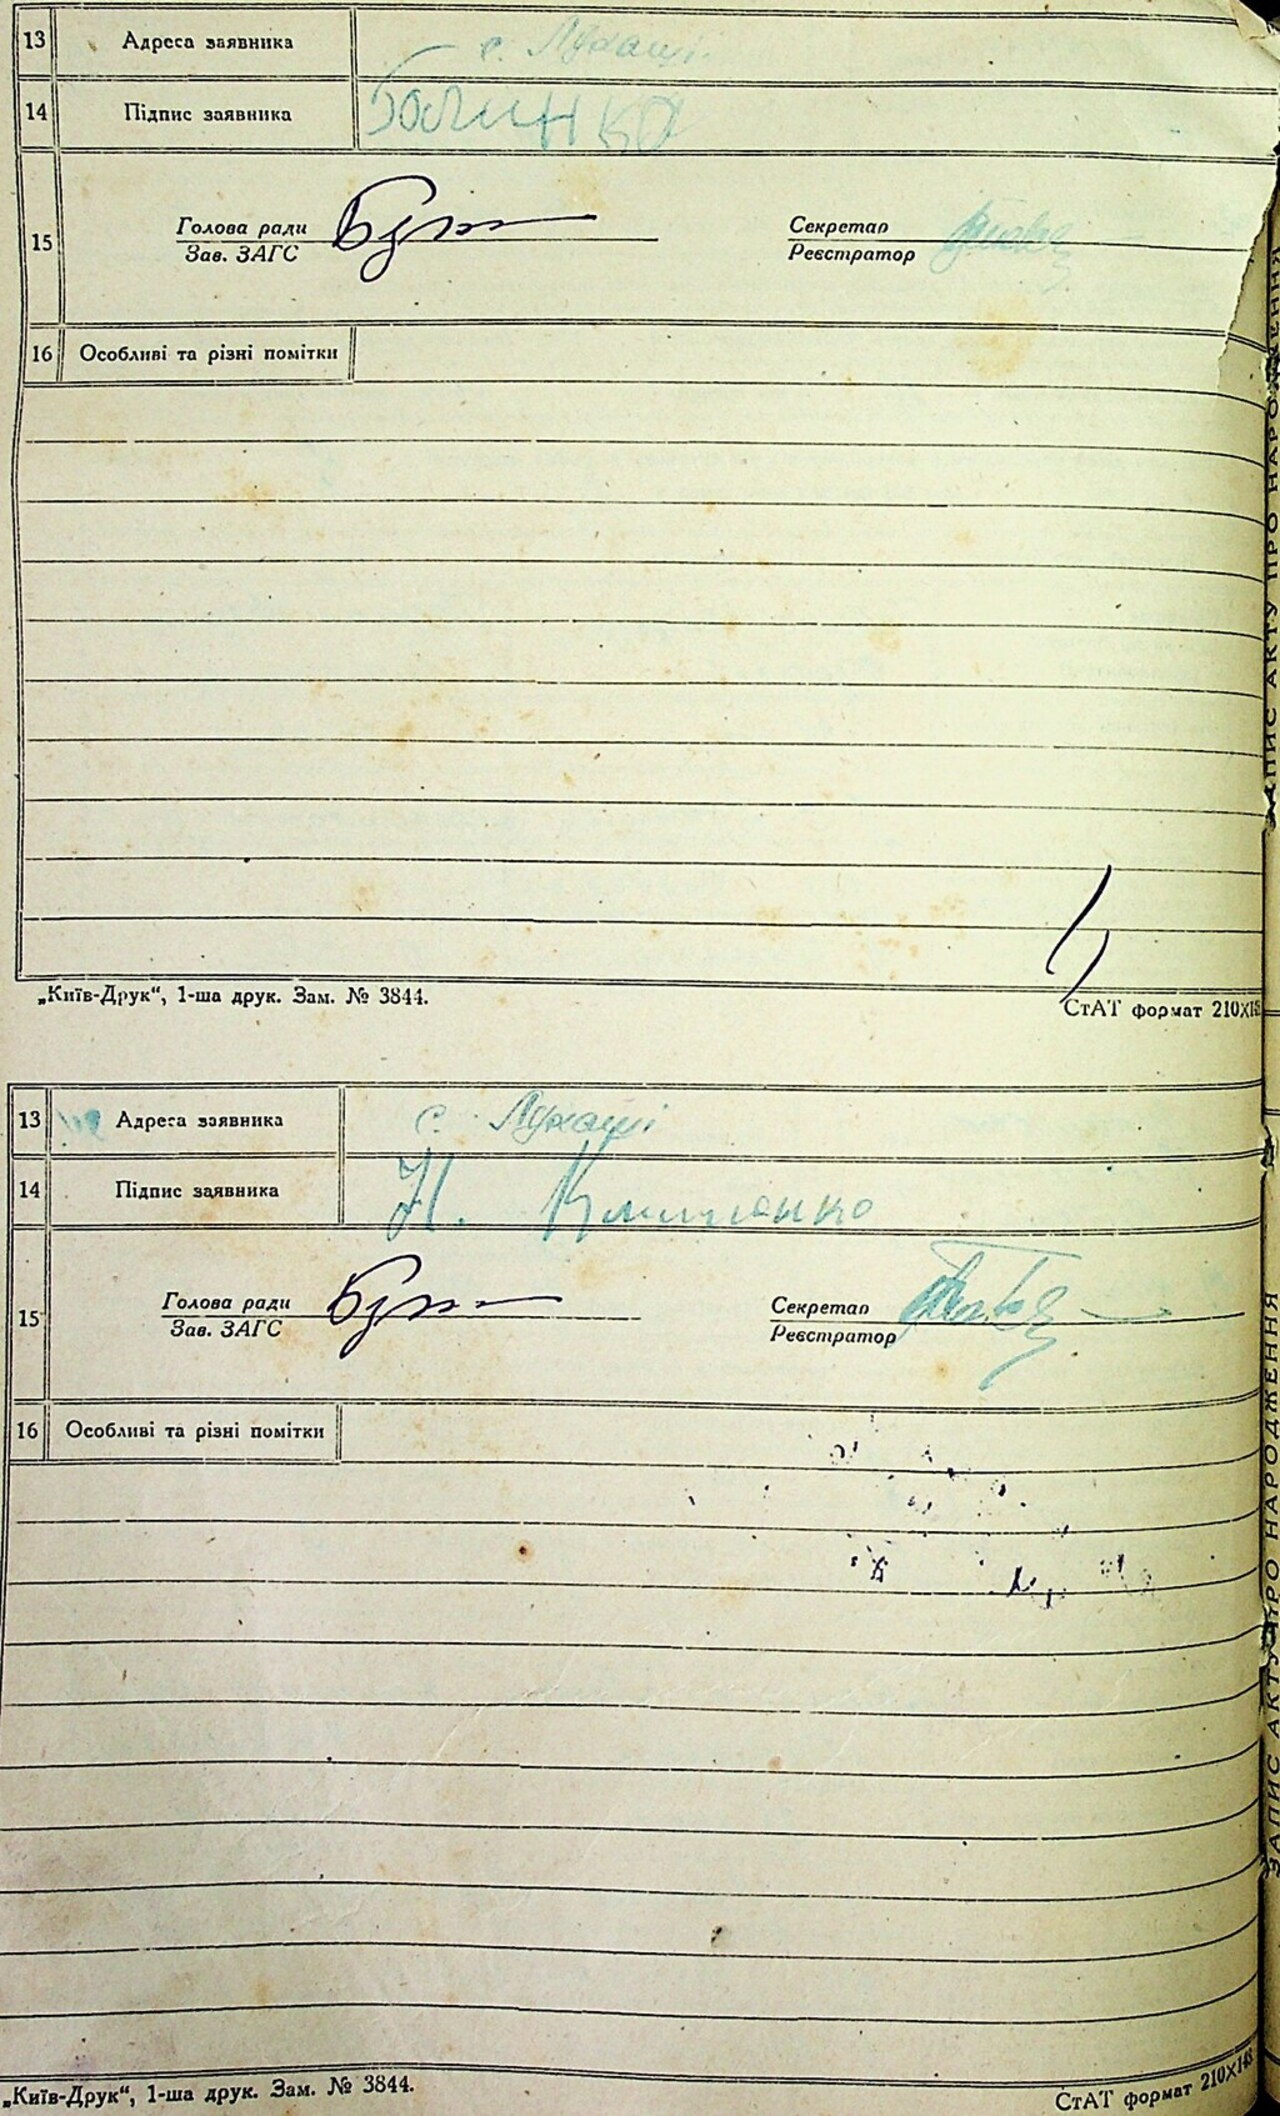 13 Адреса заявника с. Лукаші
14 Підпис заявника
15 Голова ради Секретар
Зав. ЗАГС Реєстратор
16 Особливі та різні помітки
„Київ-Друк“, 1-ша друк. Зам. № 3844.
СтАТ формат 210X148
13 Адреса заявника с. Лукаші
14 Підпис заявника Н. Клименко
15 Голова ради Секретар
Зав. ЗАГС Реєстратор
16 Особливі та різні помітки
„Київ-Друк“, 1-ша друк. Зам. № 3844.
СтАТ формат 210X148
ЗАПИС АКТУ ПРО НАРОДЖЕННЯ
ЗАПИС АКТУ ПРО НАРОДЖЕННЯ